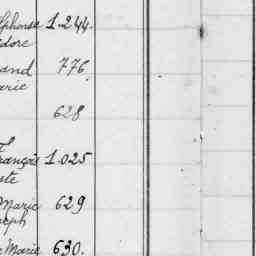 Alphonse 1.244.
idore
and 776.
arie
628
rançois 1.025
ste
Marie 629
seph
Marie 630.